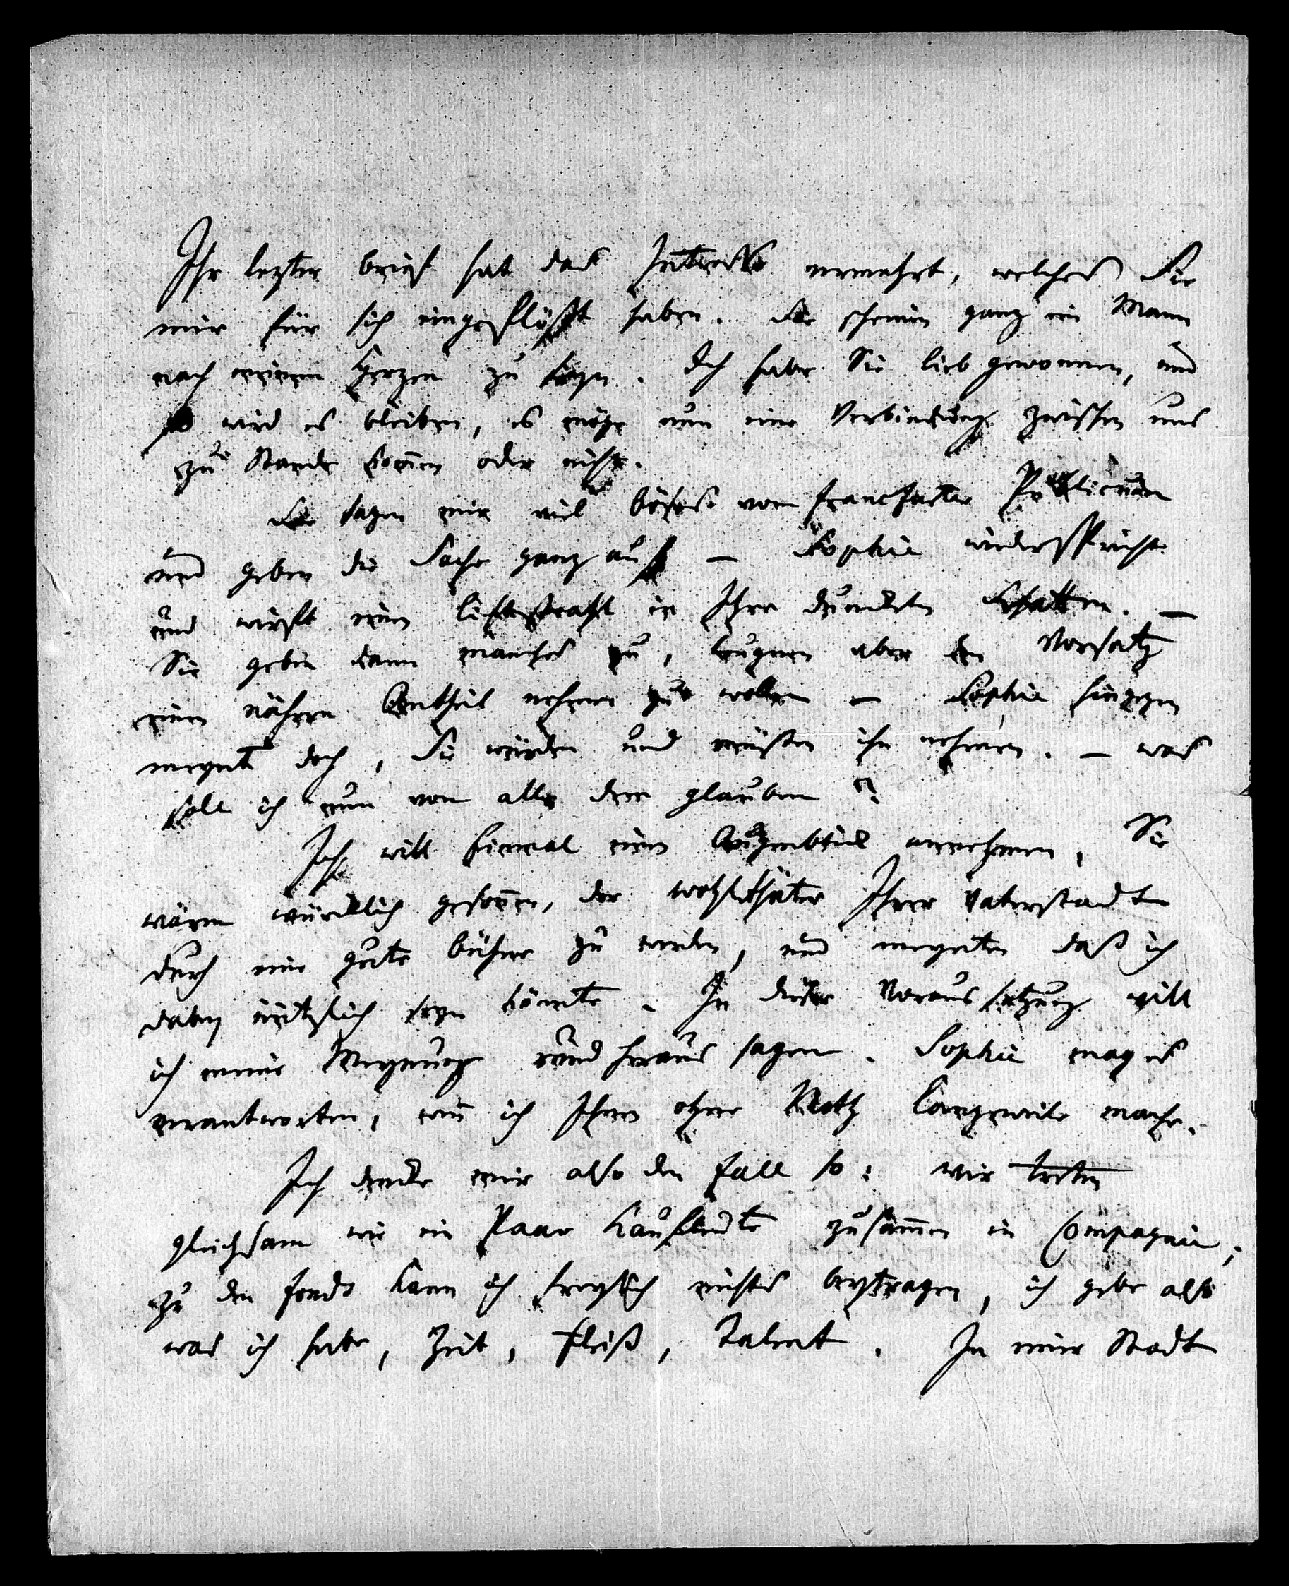 Ihr lezter brief hat das Interesse vermehrt, welches Sie
mir für sich eingeflößt haben. Sie scheinen ganz ein Mann
nach meinem Herzen zu seyn. Ich habe Sie lieb gewonnen, und
so wird es bleiben, es möge nun eine Verbindung zwischen uns
zu Stande kom̅en oder nicht.
Sie sagen mir viel böses vom francfurter Publicum
und geben die Sache ganz auf — Sophie wiederspricht
und wirft einen lichtstrahl in Ihre dunklen Schatten. —
Sie geben dann manches zu, leugnen aber den Vorsatz
einen nähern Antheil nehmen zu wollen — Sophie hingegen
meynt doch, Sie würden und müßten ihn nehmen. — was
soll ich nun von alle dem glauben?
Ich will hiemal einen Augenblick annehmen, Sie
wären würcklich geson̅en, der wohlthäter Ihrer Vaterstadt
durch eine gute bühne zu werden, und meynten daß ich
dabey nützlich seyn könnte. In dieser Voraussetzung will
ich meine Meynung rund heraus sagen. Sophie mag es
verantworten, wen̅ ich Ihnen ohne Nutz Langeweile mache.
Ich dencke mir also den fall so: wir treten
gleichsam wie ein Paar Kaufleute zusam̅en in Compagnie;
zu den fonds kann ich freylich nichts beytragen, ich gebe also
was ich habe, Zeit, fleiß, Talent. In einer Stadt